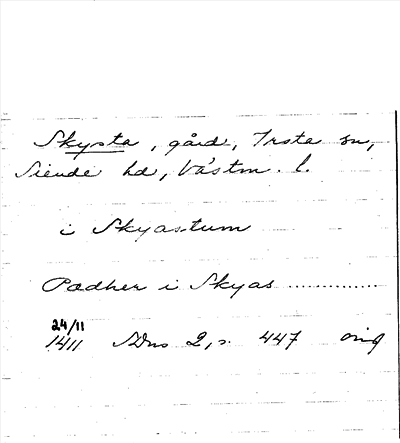 Skysta, gård, Irsta sn,
Siende hd, Västm. l.
i Skyastum
Padher i Skyas ..............
24/11
1411 SDns 2, s. 447 orig